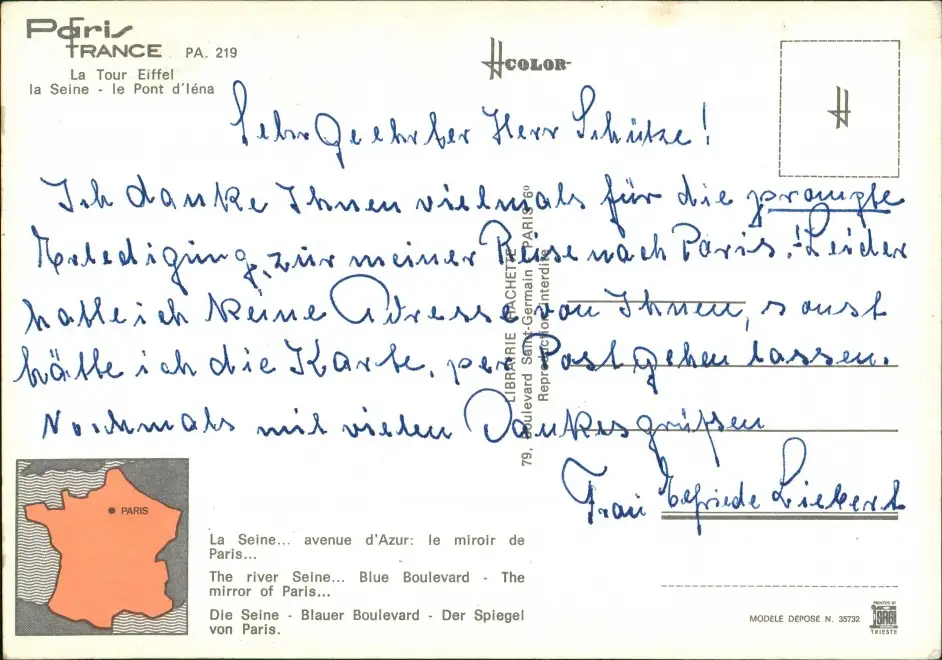 Paris
FRANCE PA. 219
La Tour Eiffel
la Seine - le Pont d'Iéna
HCOLOR
H
Sehr Geehrter Herr Schütze!
Ich danke Ihnen vielmals für die prompte
Erledigung, zur meiner Reise nach Paris! Leider
hatte ich keine Adresse von Ihnen, sonst
hätte ich die Karte, per Post gehen lassen.
Nochmals mit vielen Dankesgrüßen
Frau Elfriede Liebert
LIBRAIRIE HACHETTE
79, Boulevard Saint-Germain PARIS 6°
Reproduction interdite
PARIS
La Seine... avenue d'Azur: le miroir de
Paris...
The river Seine... Blue Boulevard - The
mirror of Paris...
Die Seine - Blauer Boulevard - Der Spiegel
von Paris.
MODELE DEPOSE N. 35732
PRINTED BY
SAGI
TRIESTE